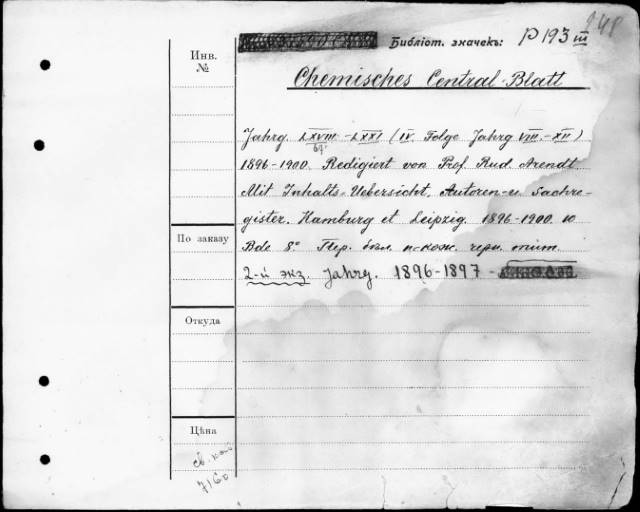 Инв.
№
Библіот. значекъ: P 193 III
Chemisches Central-Blatt
Jahrg. LXVIII-LXXI (IV. Folge Jahrg VIII.-XII)
67.
1896-1900. Redigiert von Prof. Rud. Arendt
Mit Inhalts-Uebersicht, Autoren- u. Sachre-
gister. Hamburg et Leipzig. 1896-1900. 10
Bde 8° Пер. п-кож. черн. тит.
2-й экз. Jahrg. 1896-1897 -
По заказу
Откуда
Цѣна